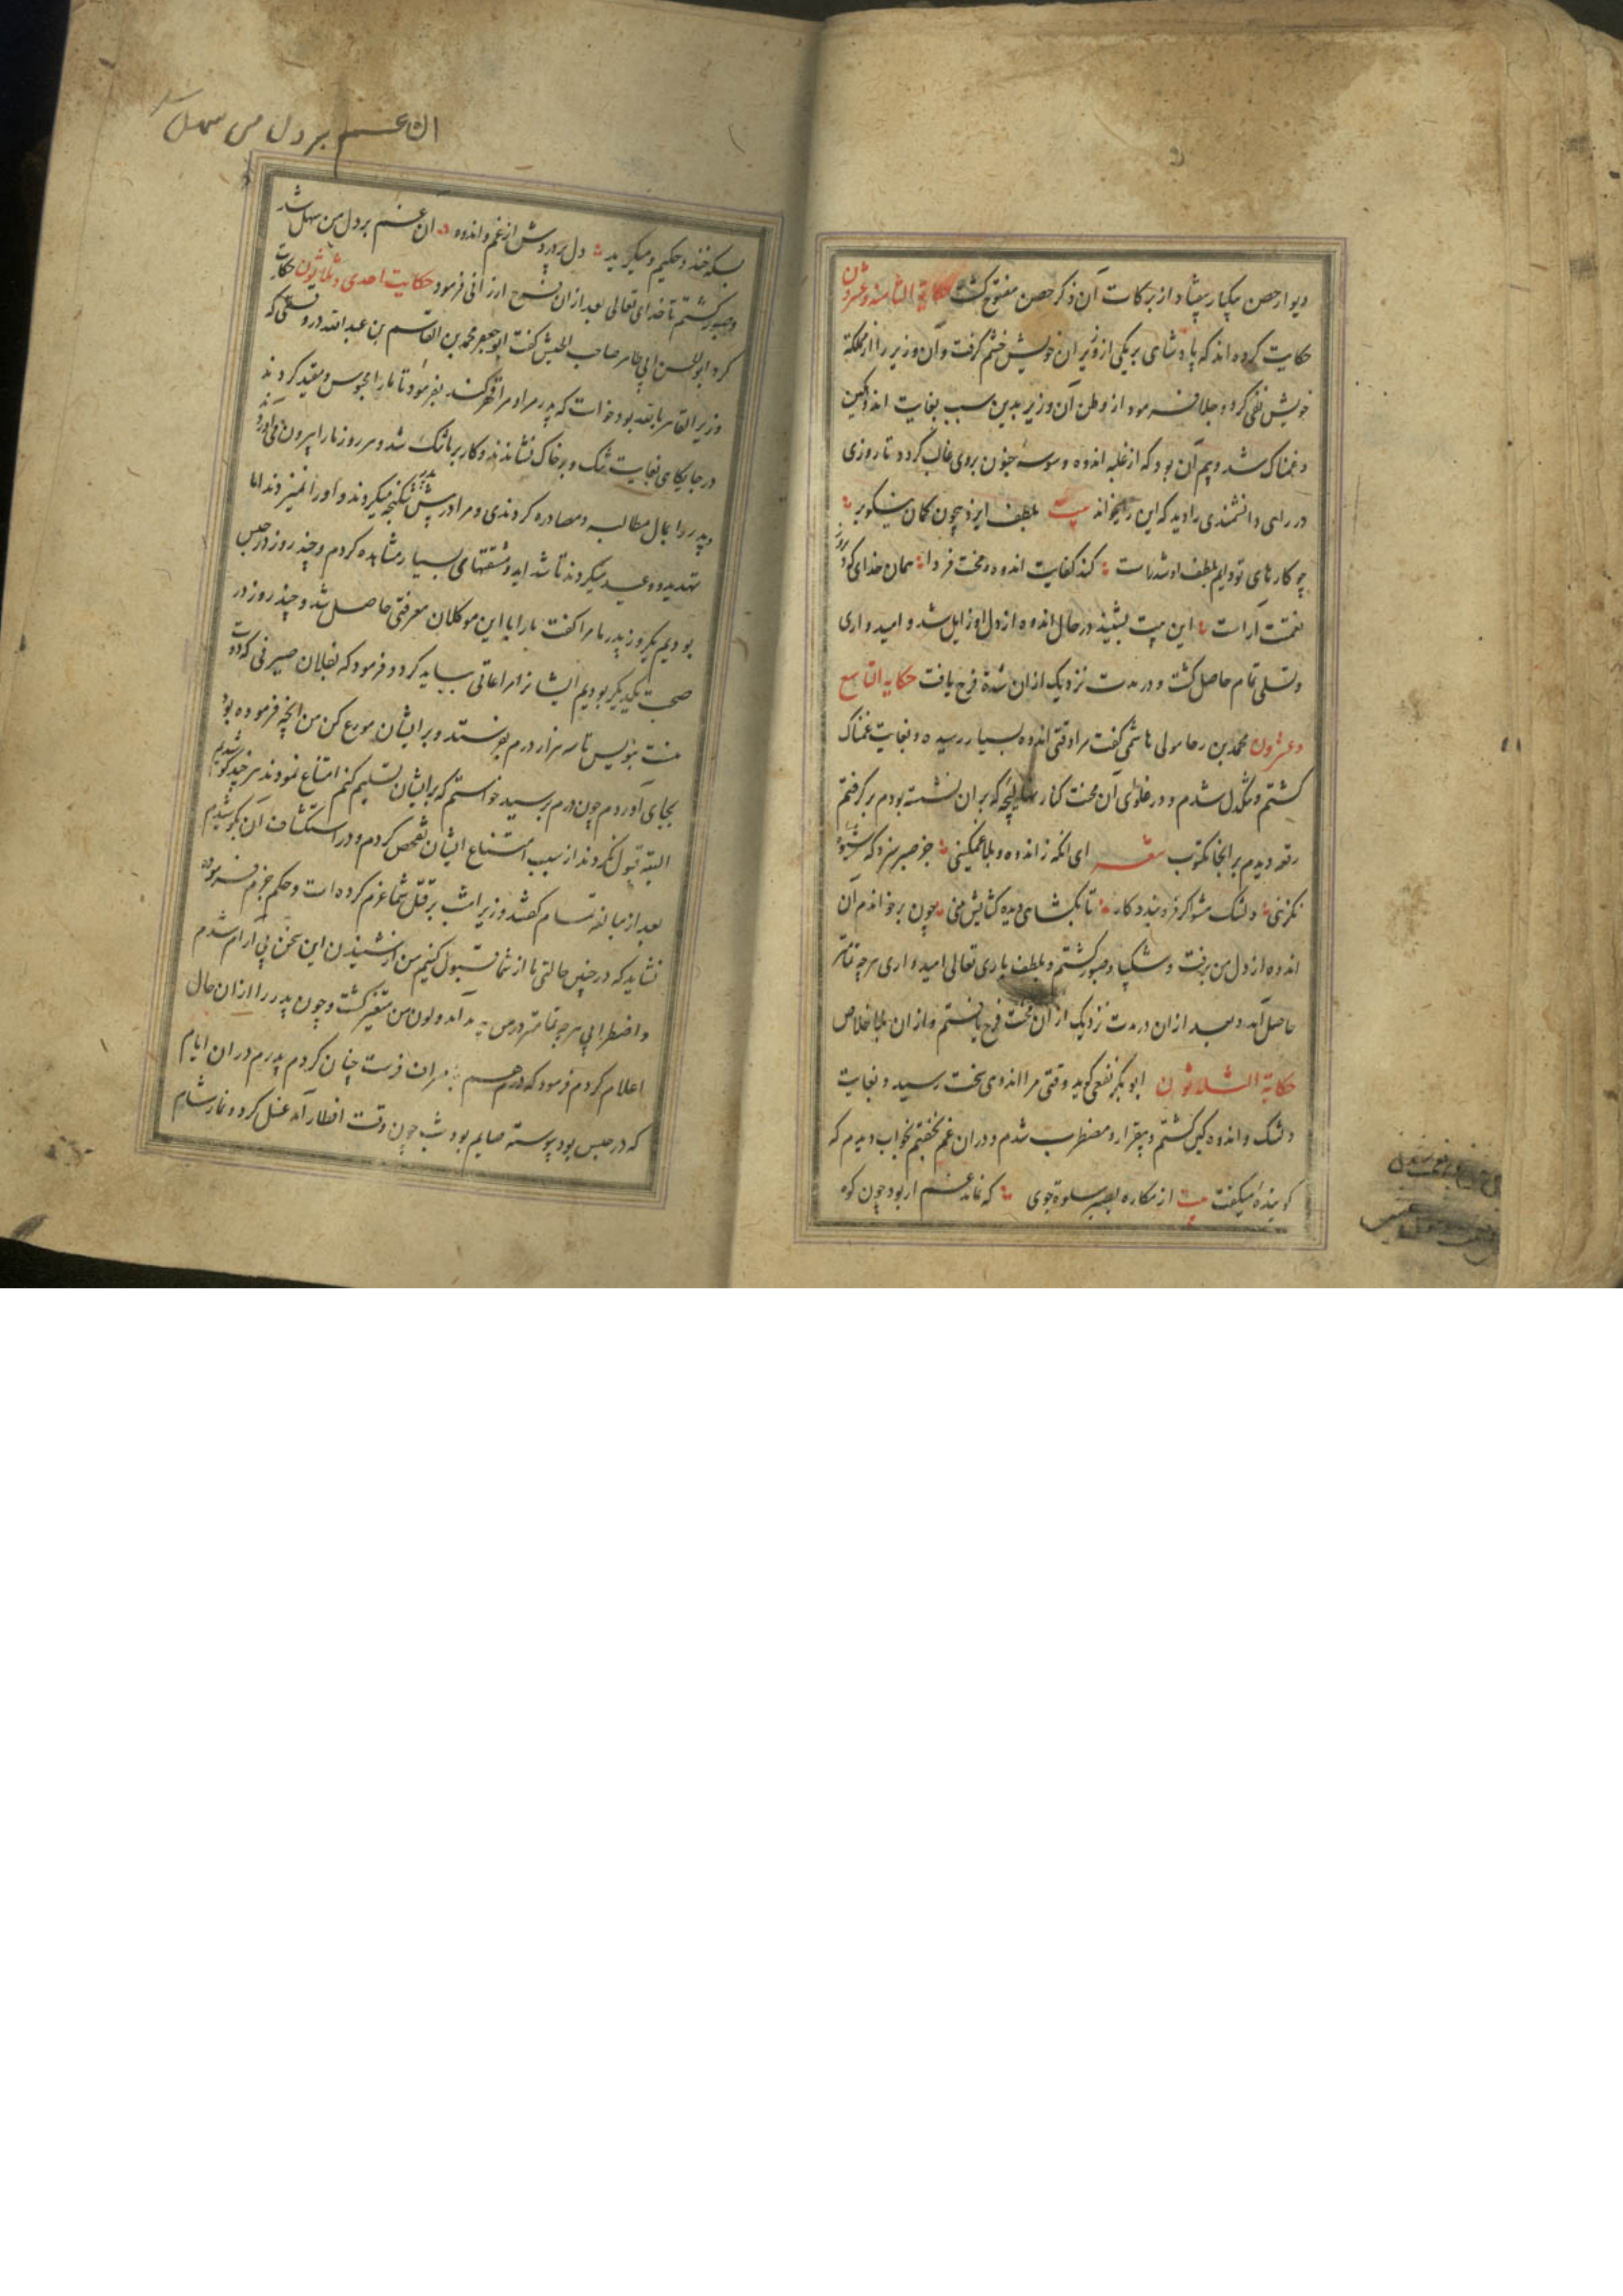 دیوار حصن بیکبار بیفتاد و از برکات آن ذکر حصن مفتوح گشت حکایة الثامنة و عشرون
حکایت کرده اند که پادشاهی بر یکی از وزیران خویش خشم گرفت و آن وزیر را از مملکة
خویش نفی کرد و جلا فرمود از وطن آن وزیر بدین سبب بغایت اندوهگین
و غمناک شد و بیم آن بود که از غلبه اندوه و سوسه جنون بروی غالب کردد تا روزی
در راهی دانشمندی را دید که این را میخواند بیت بلطف ایزد بیچون کمان نیکو بر
چو کارهای تو دایم بلطف او شد راست کند کفایت اندوه و محنت فردا همان خدای که روز
نعمتت آراست این بیت بشنید در حال اندوه از دل او زایل شد و امیدواری
و تسلی تمام حاصل کشت و در مدت نزدیک از ان شدة فرج یافت حکایة التاسع
و عشرون محمد بن رجا مولی هاشمی کفت مرا وقتی اندوه بسیار رسیده و بغایت غمناک
کشتم و تنکدل شدم و در غلوای آن محنت کنار نهالیچه که بر ان نشسته بودم برکرفتم
رقعه دیدم بر انجا مکتوب شعر ای انکه ز اندوه و بلا غمکینی جز صبر سزد که شیوه
نکزینی دلتنک مشو اکر فرو بندد کار تا بکشای دیده کشایش بینی چون برخواندم آن
اندوه از دل من برفت و شکیبا و صبور کشتم و بلطف باری تعالی امیدواری هر چه تمامتر
حاصل آمد و بعد از ان در مدت نزدیک از آن محنت فرج یافتم و از ان بلا خلاص
حکایة الثلاثون ابو بکر نفعی کوید وقتی مرا اندوهی سخت رسید و بغایت
دلتنک و اندوه کین کشتم و بیقرار و مضطرب شدم و در ان غم بخفتم بخواب دیدم که
کوینده میکفت بیت از مکاره بصبر سلوة جوی که نماند غم ار بود چون کوه
ان غم بر دل من سهل
بسکه خندد حکیم و میکرید دل پر درد ش از غم و اندوه ان غم بر دل من سهل شد
و صبور کشتم تا خدای تعالی بعد از ان فرج ارزانی فرمود حکایت احدی و ثلاثون حکایت
کرد ابو الحسن ابی طاهر صاحب الجیش کفت ابو جعفر محمد بن القاسم بن عبد الله در وقتی که
وزیر القاهر بالله بود خواست که پدر مرا و مرا قهر کند بفرمود تا ما را محبوس و مقید کردند
در جایکاهی بغایت تنک و بر خاک نشاندند و کار بر ما تنک شد و هر روز ما را بیرون می آوردند
و پدر را بمال مطالبه و مصادره کردندی و مرا در پیش پدر شکنجه میکردند و او را نمیزدند اما
تهدید و وعید میکردند تا شداید و مشقتهای بسیار مشاهده کردم و چند روز در حبس
بودیم یکروز پدر ما مرا کفت ما را با این موکلان معرفتی حاصل شد و چند روز در
صحبت یکدیکر بودیم ایشانرا مراعاتی بباید کرد و فرمود که بفلان صیرفی که دوست
منست بنویس تا سه هزار درم بفرستد و بر ایشان موزع کن من انچه فرموده بود
بجای آوردم چون درم برسید خواستم که بر ایشان تسلیم کنم امتناع نمودند هر چند کوشیدم
البته قبول نکردند از سبب امتناع ایشان تفحص کردم و در استکشاف آن بکوشیدم
بعد از مبالغه تمام کفتند وزیر امشب بر قتل شما عزم کرده است و حکم جزم فرموده
نشاید که در چنین حالتی ما از شما قبول کنیم من از شنیدن این سخن بی آرام شدم
و اضطرابی هر چه تمامتر در من پدید آمد و لون من متغیر کشت و چون پدر را از ان حال
اعلام کردم فرمود که درهم بران فرست چنان کردم پدرم در ان ایام
که در حبس بود پیوسته صایم بود شب چون وقت افطار آمد غسل کرد و نماز شام